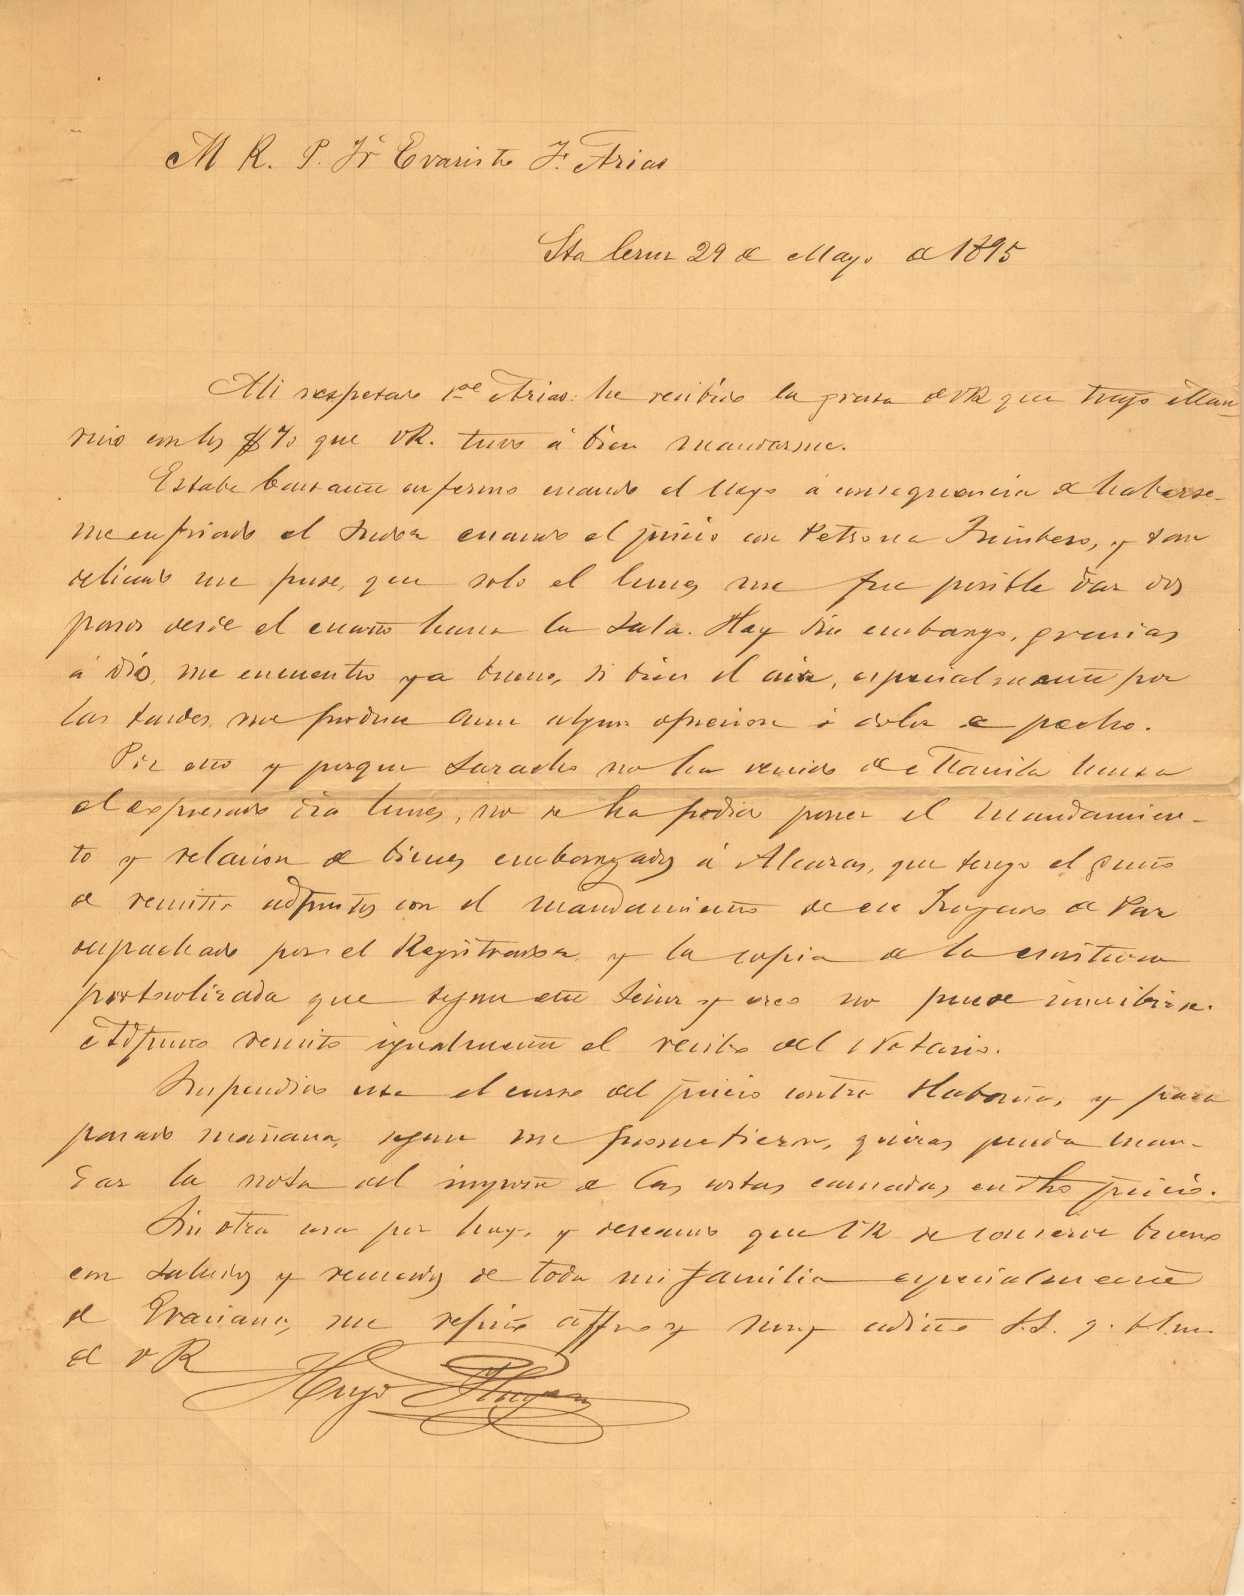 M R. P. Fr Evaristo F. Arias
Sta Cruz 29 de Mayo de 1895
Mi respetado Pde Arias: he recibido la grata de VR que trajo Maria-
nino con los $70 que VR. tuvo á bien mandarme.
Estaba bastante enfermo cuando el llego á consequencia de haberse-
me enfriado el sudor cuando el juicio con Petrona, y tan
delicado me puse, que solo el lunes me fue posible dar dos
pasos desde el cuarto hasta la sala. Hoy sin embargo, gracias
á Dios, me encuentro ya bueno, si bien el aire, especialmente por
las tardes, me produce aun algun opresion ó dolor de pecho.
Por esto y porque Saracho no ha venido de Manila hasta
el expresado dia lunes, no se ha podido poner el mandamien-
to y relacion de bienes embargados á Alcaras, que tengo el gusto
de remitir adjuntos con el mandamiento de ese Juzgado de Paz
despachado por el Registrador, y la copia de la escritura
protocolizada que segun este Señor y creo no puede inscribirse.
Adjunto remito igualmente el recibo del Notario.
Suspendido esta el curso del juicio contra, y para
pasado mañana, segun me prometieron, quizas pueda man-
dar la nota del importe de las costas causadas en dho juicio.
Sin otra cosa por hoy, y deseando que VR se conserve bueno
con saludos y recuerdos de toda mi familia especialmente
de Graciano, me repito affmo y muy adicto S.S. q. b.l.m.
de VR
Hugo Ilagan